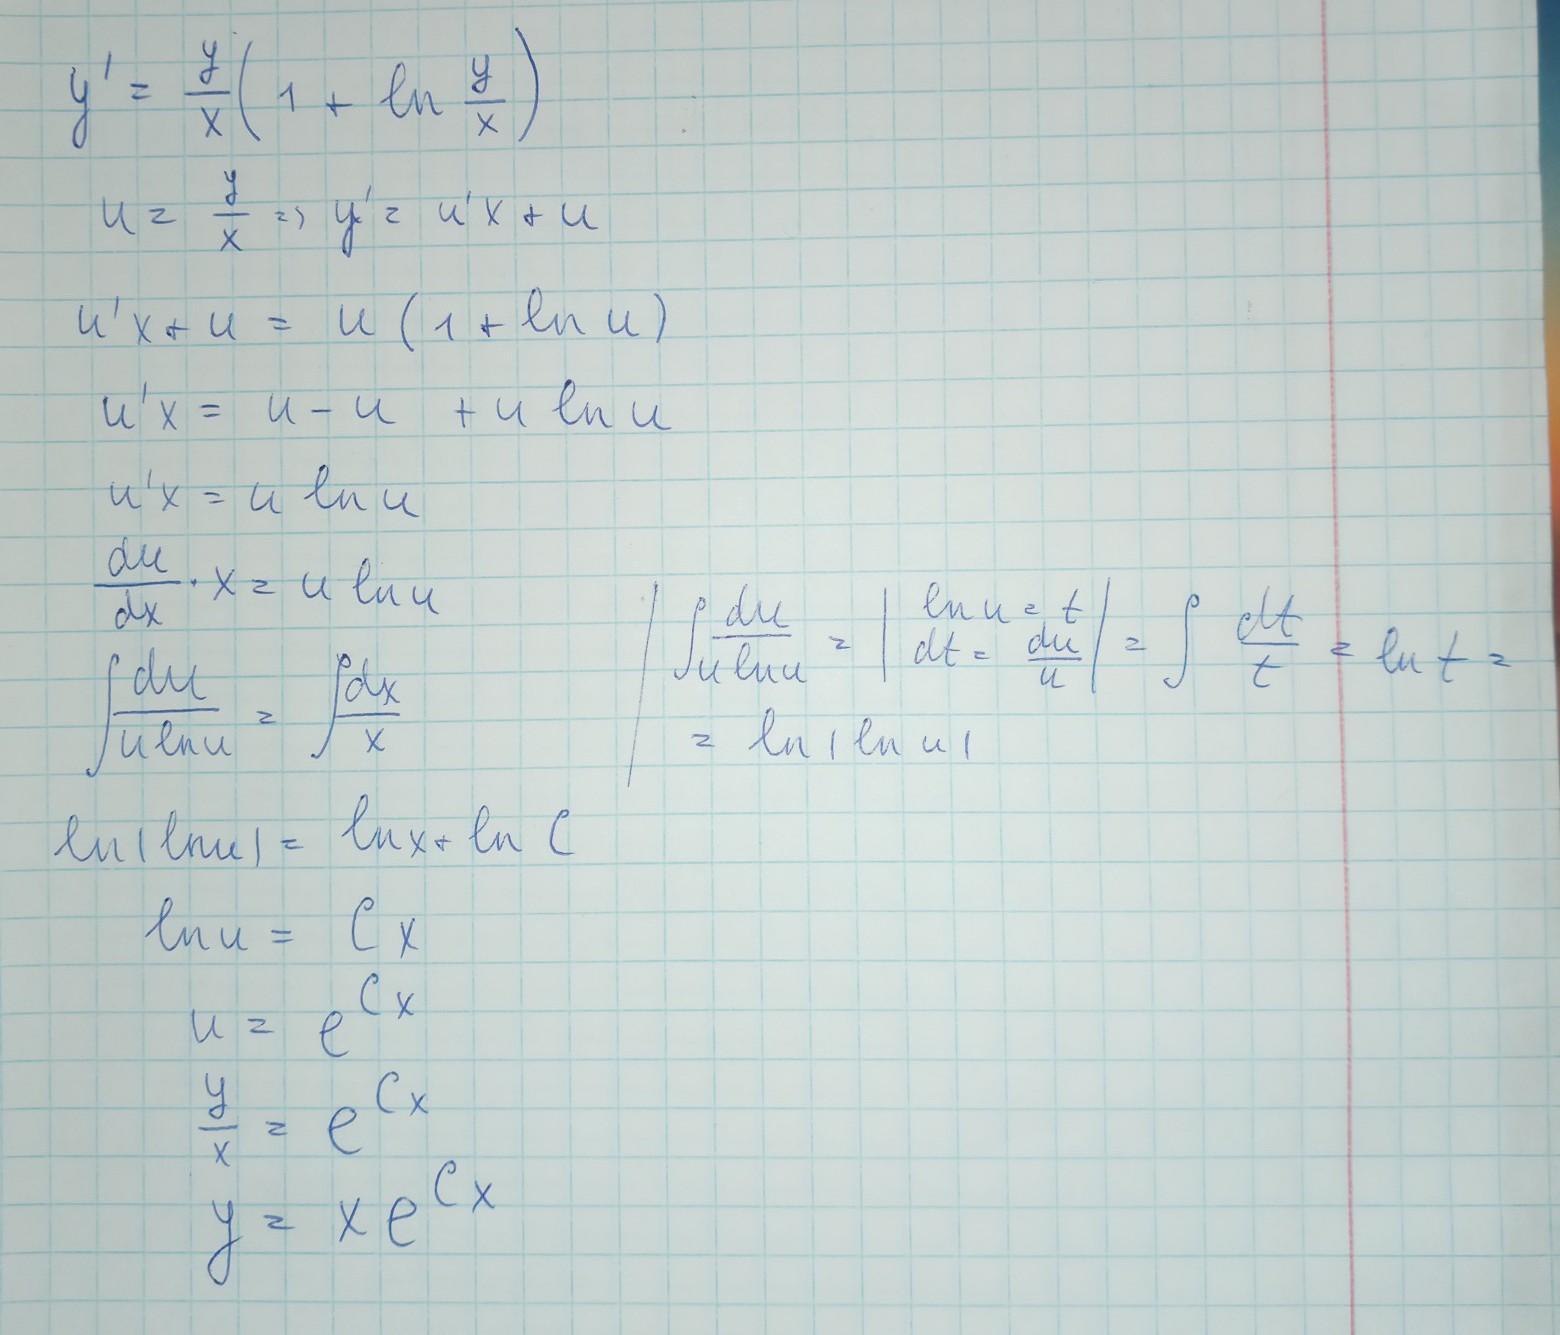 y' = y/x (1 + ln y/x)
u = y/x => y' = u'x + u
u'x + u = u (1 + ln u)
u'x = u - u + u ln u
u'x = u ln u
du/dx · x = u ln u
∫ du/(u ln u) = ∫ dx/x
| ∫ du/(u ln u) = | ln u = t
dt = du/u | = ∫ dt/t = ln t =
= ln |ln u|
ln |ln u| = ln x + ln C
ln u = Cx
u = e^(Cx)
y/x = e^(Cx)
y = x e^(Cx)